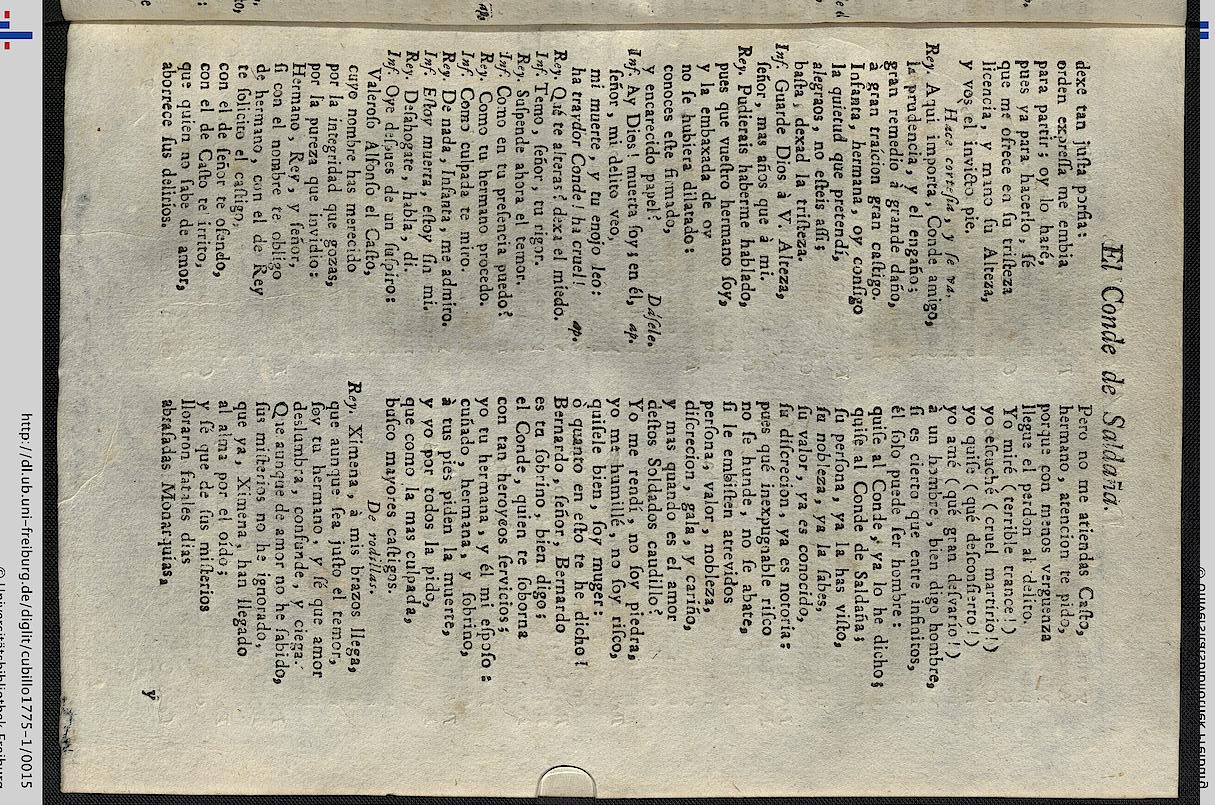 El Conde de Saldaña.
dexe tan juſta porfia:
orden expreſſa me embia
para partir; oy lo haré,
pues ya para hacerlo, ſé
que me ofrece en ſu triſteza
licencia, y mano ſu Alteza,
y vos el invicto pie.
Hace corteſia, y ſe vá.
Rey. Aqui importa, Conde amigo,
la prudencia, y el engaño;
gran remedio à grande daño,
à gran traicion gran caſtigo.
Infanta, hermana, oy conſigo
la quietud que pretendí,
alegraos, no eſteis aſſi;
baſta, dexad la triſteza.
Inf. Guarde Dios à V. Alteza,
ſeñor, mas años que à mi.
Rey. Pudierais haberme hablado,
pues que vueſtro hermano ſoy,
y la embaxada de oy
no ſe hubiera dilatado:
conoces eſte firmado,
y encarecido papel? Dáſele.
Inf. Ay Dios! muerta ſoy; en él, ap.
ſeñor, mi delito veo,
mi muerte, y tu enojo leo:
ha traydor Conde! ha cruel! ap.
Rey. Qué te alteras? dexa el miedo.
Inf. Temo, ſeñor, tu rigor.
Rey. Suſpende ahora el temor.
Inf. Como en tu preſencia puedo?
Rey. Como tu hermano procedo.
Inf. Como culpada te miro.
Rey. De nada, Infanta, me admiro.
Inf. Eſtoy muerta eſtoy ſin mi.
Rey. Deſahogate, habla, di.
Inf. Oye deſpues de un ſuſpiro:
Valeroſo Alfonſo el Caſto,
cuyo nombre has merecido
por la integridad que gozas,
por la pureza que invidio:
Hermano, Rey, y ſeñor,
ſi con el nombre te obligo
de hermano, con el de Rey
te ſolicito el caſtigo,
con el de ſeñor te ofendo,
con el de Caſto te irrito,
que quien no ſabe de amor,
aborrece ſus delirios.
Pero no me atiendas Caſto,
hermano, atencion te pido,
porque con menos verguenza
llegue el perdon al delito.
Yo miré (terrible trance!)
yo eſcuché (cruel martirio!)
yo quiſe (qué deſconſierto!)
yo amé (qué gran deſvarío!)
à un hombre, bien digo hombre,
ſi es cierto que entre infinitos,
él ſolo puede ſer hombre:
quiſe al Conde, ya lo he dicho;
quiſe al Conde de Saldaña;
ſu perſona, ya la has viſto,
ſu nobleza, ya la ſabes,
ſu valor, ya es conocido,
ſu diſcrecion, ya es notoria:
pues qué inexpugnable riſco
no ſe hunde, no ſe abate,
ſi le embiſten atrevidos
perſona, valor, nobleza,
diſcrecion, gala, y cariño,
y mas quando es el amor
deſtos Soldados caudillo?
Yo me rendí, no ſoy piedra,
yo me humillé, no ſoy riſco,
quiſele bien, ſoy muger:
ò quanto en eſto te he dicho!
Bernardo, ſeñor, Bernardo
es tu ſobrino, bien digo;
el Conde, quien te ſoborna
con tan heroycos ſervicios;
yo tu hermana, y él mi eſpoſo:
cuñado, hermana, y ſobrino,
à tus pies piden la muerte,
y yo por todos la pido,
que como la mas culpada,
buſco mayores caſtigos.
De rodillas.
Rey. Ximena, à mis brazos llega,
que aunque ſea juſto el temor,
ſoy tu hermano, y ſé que amor
deslumbra, confunde, y ciega.
Que aunque de amor no he ſabido,
ſus miſterios no he ignorado,
que ya, Ximena, han llegado
al alma por el oído;
y ſé que de ſus miſterios
lloraron fatales dias
abraſadas Monarquias,
y
http://dl.ub.uni-freiburg.de/diglit/cubillo1775-1/0015
© Universitätsbibliothek Freiburg